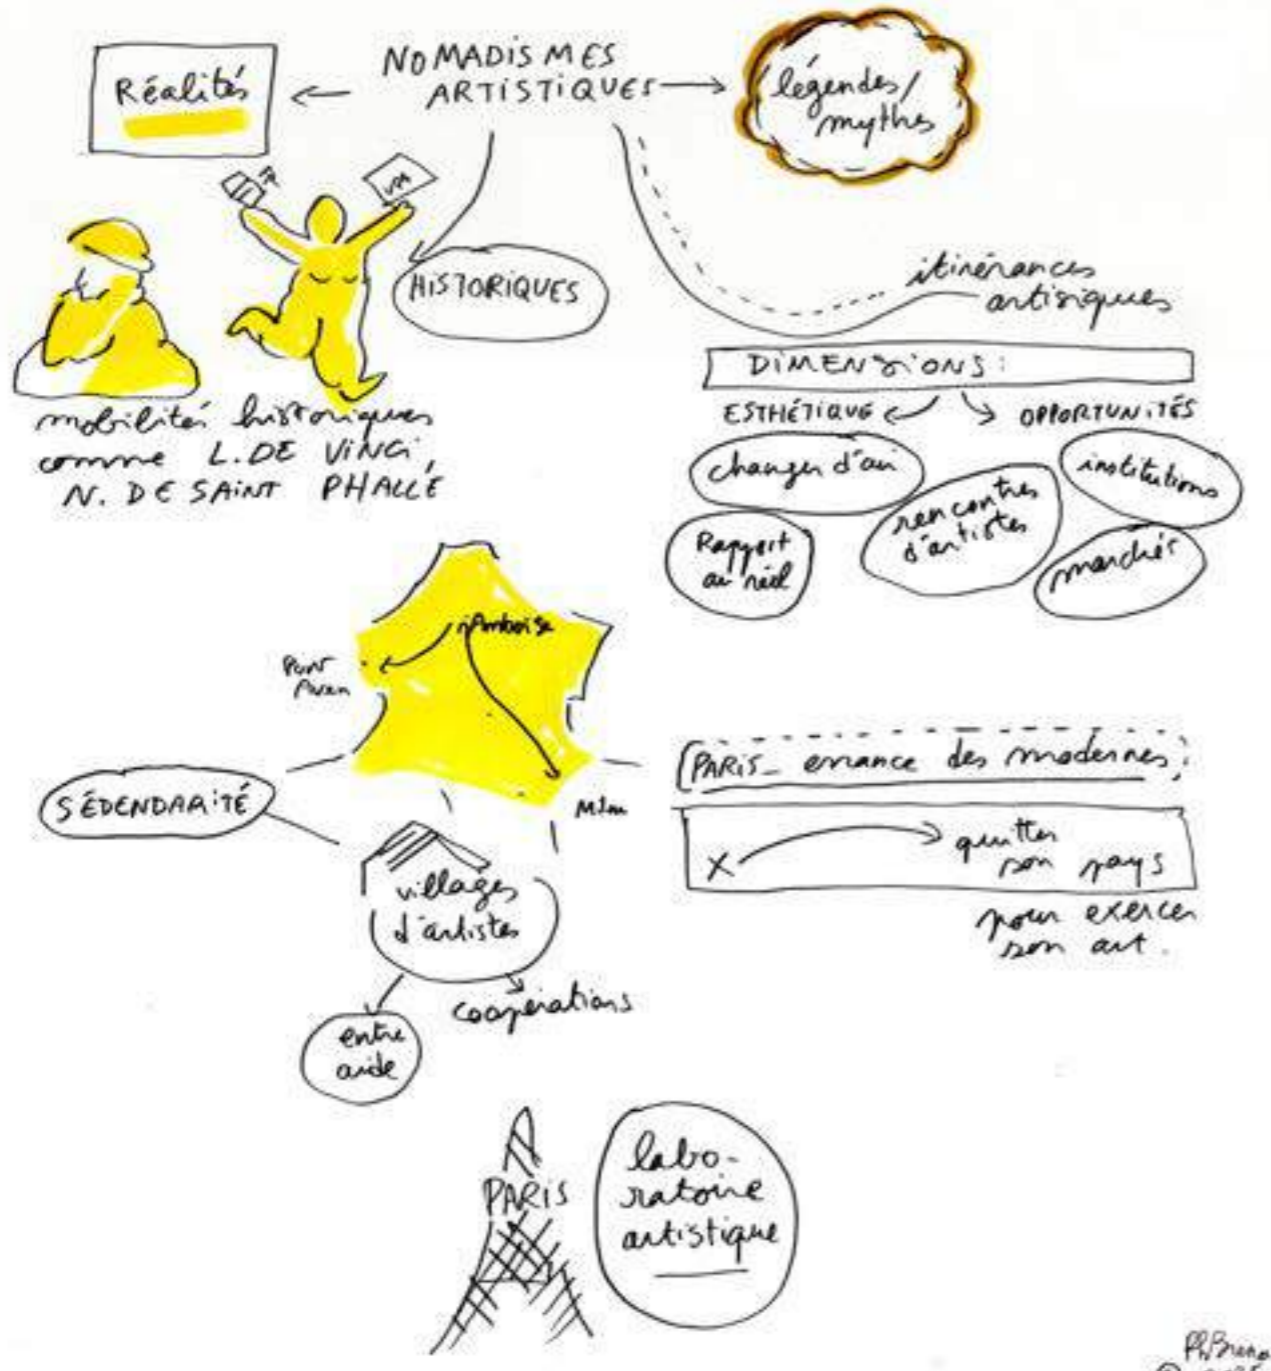 NOMADISMES
ARTISTIQUES
Réalités
légendes/
mythes
FR
USA
HISTORIQUES
itinérances
artisiques
mobilités historiques
comme L. DE VINCI,
N. DE SAINT PHALLE
DIMENSIONS:
ESTHÉTIQUE
OPPORTUNITÉS
changer d'air
institutions
rencontres
d'artistes
Rapport
au réel
marchés
Amboise
Pont
Aven
Milan
SÉDENDARITÉ
villages
d'artistes
entre
aide
coopérations
PARIS_ errance des modernes:
X
quitter
son pays
pour exercer
son art.
PARIS
labo-
ratoire
artistique